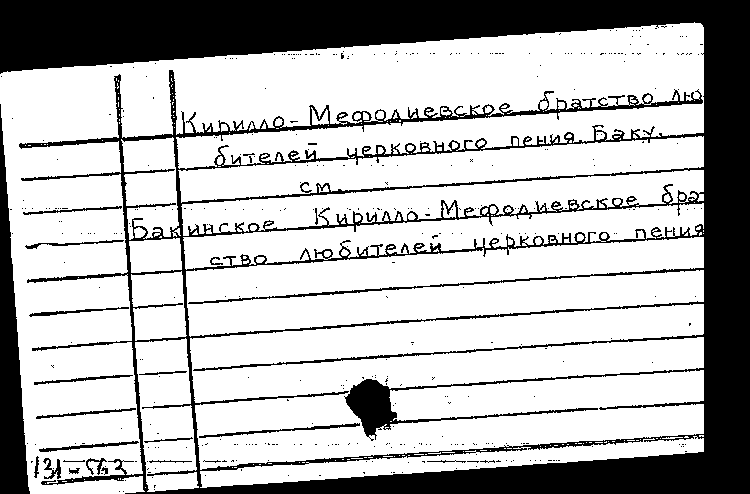 Кирилло-Мефодиевское братство лю
бителей церковного пения. Баку.
см.
Бакинское Кирилло-Мефодиевское брат
ство любителей церковного пения